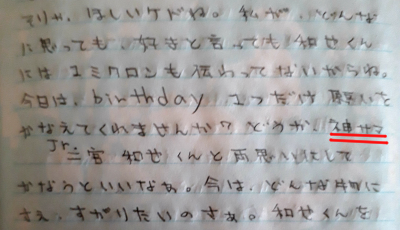 ほしいケドね。私が、どんな
に思っても、好きと言っても和せくん
には1ミクロンも伝わってないからね。
今日は、birthday 1つだけ願いを
かなえてくれませんか?どうか神サマ
Jr.
二宮和せくんと両思いに
かなうといいなぁ。今は、どんな
さえ、すがりたいのすぁ。和せくんを